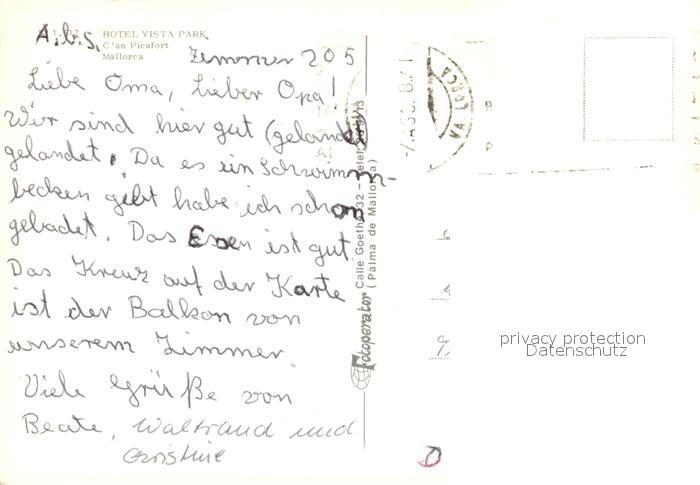 A.b.s.
HOTEL VISTA PARK
C'an Picafort
Mallorca
Zimmer 205
Liebe Oma, Lieber Opa!
Wir sind hier gut (gelandet)
gelandet. Da es ein Schwimm-
becken gibt habe ich schon
gebadet. Das Essen ist gut.
Das Kreuz auf der Karte
ist der Balkon von
unserem Zimmer.
Viele Grüße von
Beate, Waltraud und
Christine
Fotoperator Calle Goethe, 32 - Telef.
(Palma de Mallorca)
privacy protection
Datenschutz